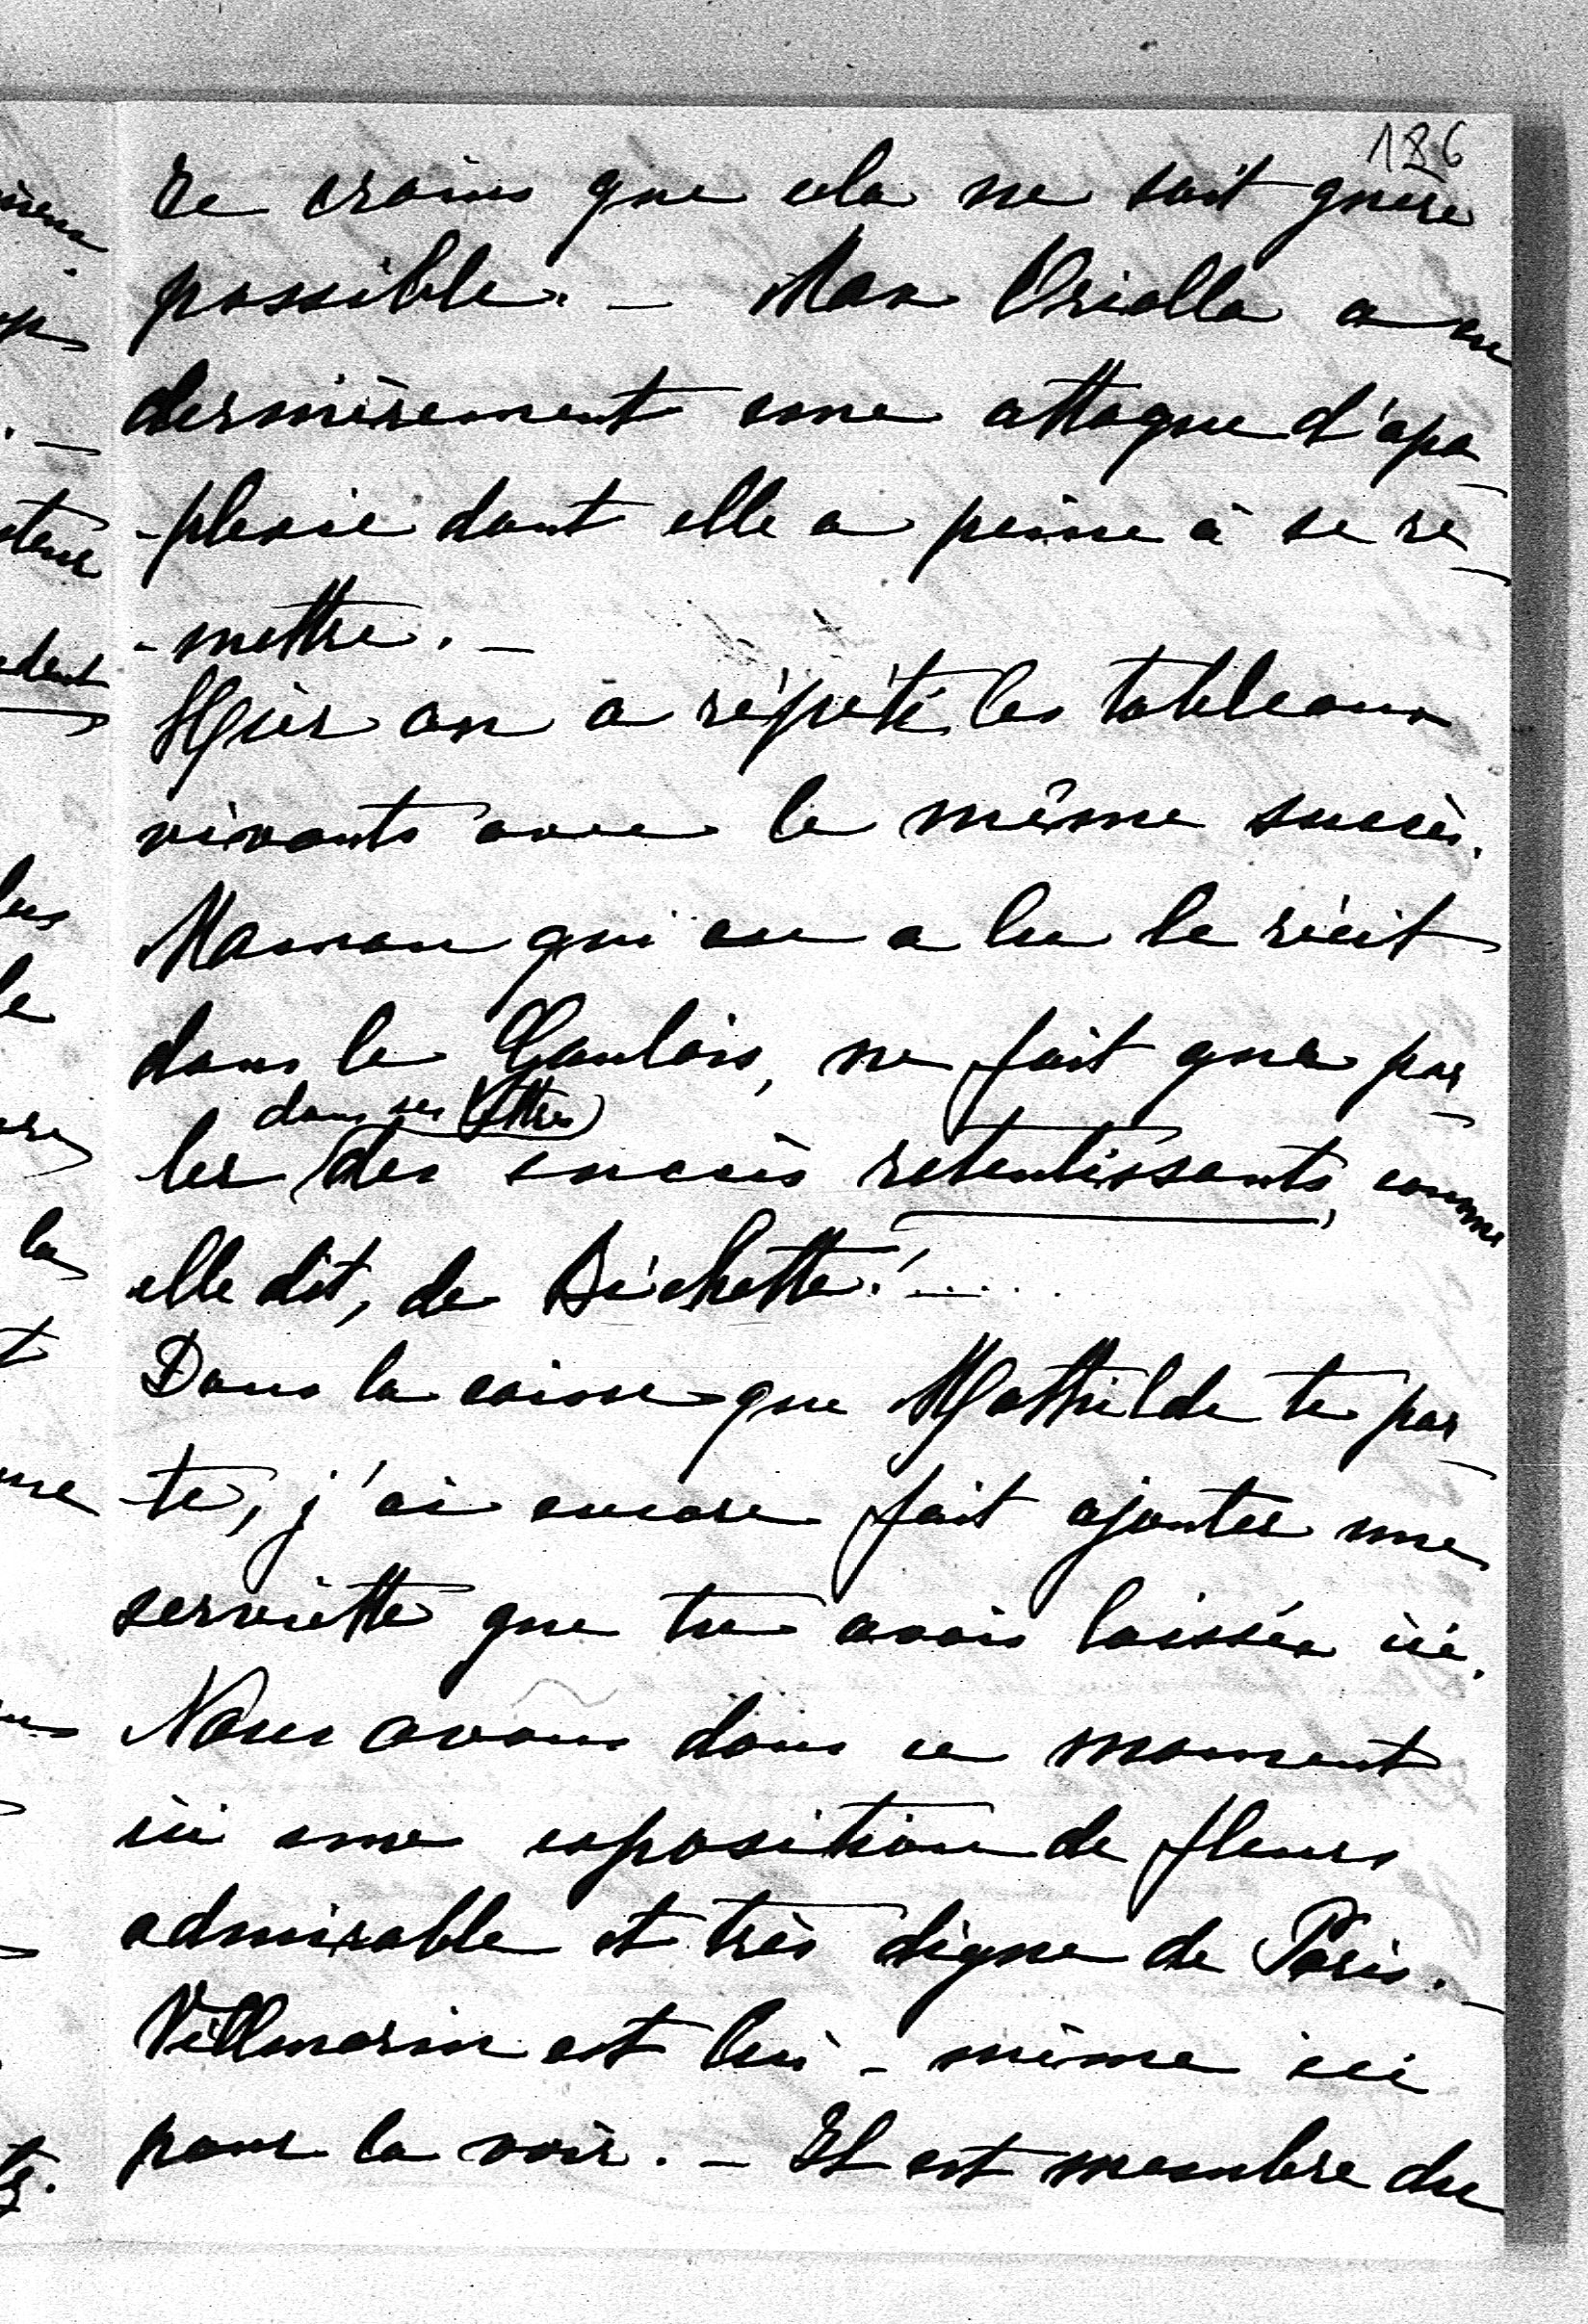 186
Je crains que cela ne soit guère
possible. – Max Oriolla a eu
dernièrement une attaque d'apo-
-plexie dont elle a peine à se re-
-mettre. –
Hier on a répété les tableaux
vivants avec le même succès.
Maman qui en a lu le récit
dans le Gaulois, ne fait que par-
dans ses lettres
ler des succès retentissants, comme
elle dit, de Bichette!.....
Dans la caisse que Mathilde te por-
te, j'ai encore fait ajouter une
serviette que tu avais laissée ici.
Nous avons dans ce moment
ici une exposition de fleurs
admirable et très digne de Paris. –
Villmorin est lui-même ici
pour la voir. – Il est membre du